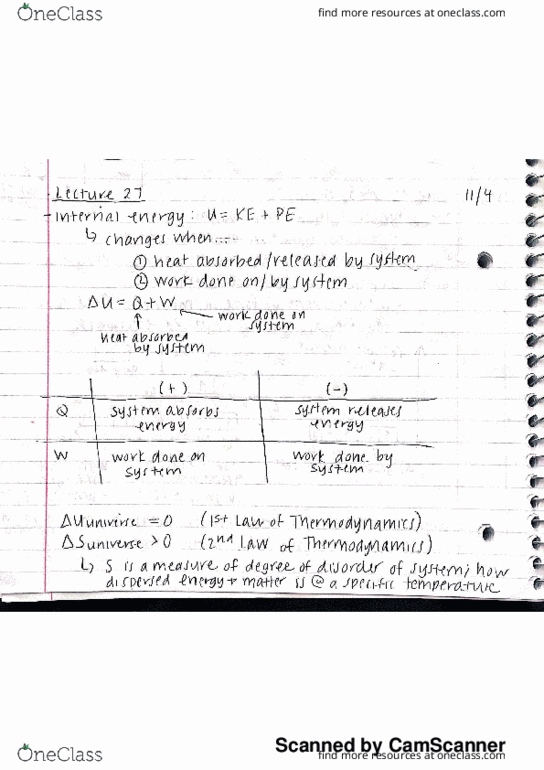 OneClass
find more resources at oneclass.com
Lecture 27
11/4
- Internal energy: U = KE + PE
↳ changes when...
① heat absorbed/released by system
② work done on/by system
ΔU = Q + W
work done on system
heat absorbed by system
(+) (-)
Q system absorbs energy system releases energy
W work done on system work done by system
ΔUuniverse = 0 (1st Law of Thermodynamics)
ΔSuniverse > 0 (2nd Law of Thermodynamics)
↳ S is a measure of degree of disorder of system; how
dispersed energy + matter is @ a specific temperature
Scanned by CamScanner
OneClass
find more resources at oneclass.com